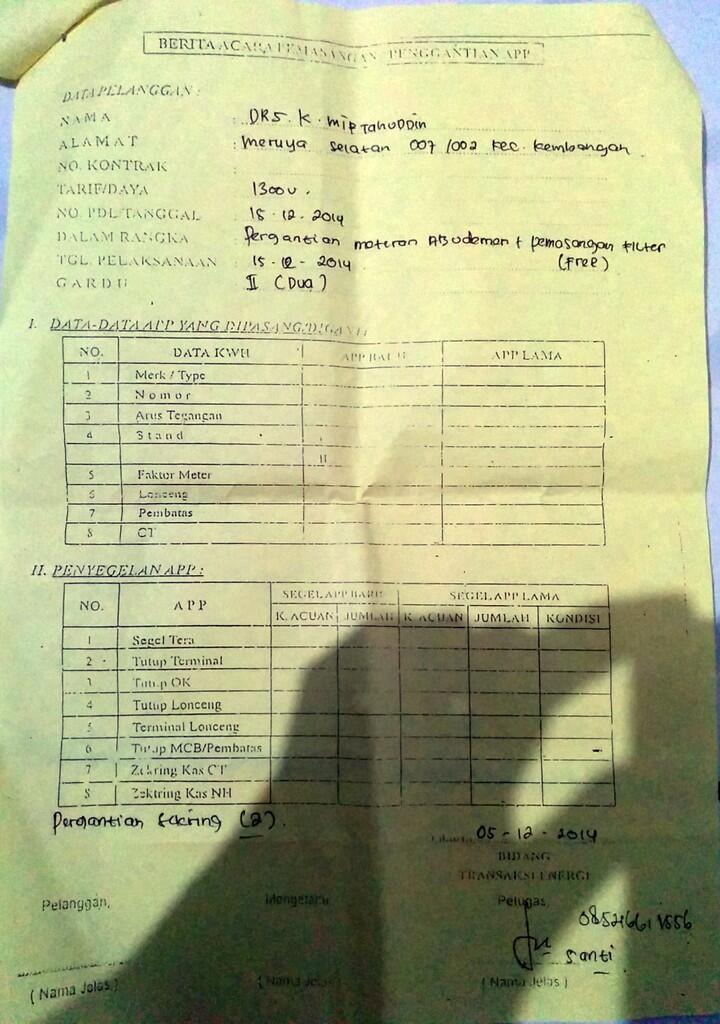 BERITA ACARA PEMASANGAN PENGGANTIAN APP
DATA PELANGGAN :
NAMA : DRS. K. MIPTAHUDDIN
ALAMAT : Meruya Selatan 007 /002 Kec. Kembangan
NO. KONTRAK
TARIF/DAYA 1300 V.
NO. PDL/TANGGAL : 15 - 12 - 2014
DALAM RANGKA : Pergantian materan ABudemen + pemasangan Filter
(Free)
TGL. PELAKSANAAN : 15 - 12 - 2014
GARDU : II (Dua)
I. DATA-DATA APP YANG DIPASANG/DIGANTI
NO. DATA KWH APP BARU APP LAMA
1 Merk / Type
2 Nomor
3 Arus Tegangan
4 Stand
II
5 Faktor Meter
6 Lonceng
7 Pembatas
8 CT
II. PENYEGELAN APP :
NO. APP SEGEL APP BARU SEGEL APP LAMA
K. ACUAN JUMLAH K. ACUAN JUMLAH KONDISI
1 Segel Tera
2 Tutup Terminal
3 Tutup OK
4 Tutup Lonceng
5 Terminal Lonceng
6 Tutup MCB/Pembatas
7 Zekring Kas CT
8 Zektring Kas NH
Pergantian Sekring (2).
05 - 12 - 2014
BIDANG
TRANSAKSI ENERGI
Pelanggan, Mengetahui Petugas,
Santi
( Nama Jelas ) ( Nama Jelas ) ( Nama Jelas )